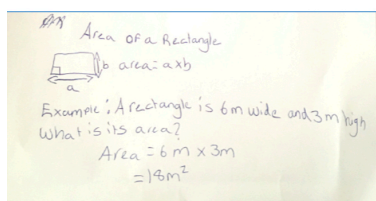 Area of a Rectangle
b area = axb
a
Example: A rectangle is 6m wide and 3m high
What is its area?
Area = 6m x 3m
= 18m²